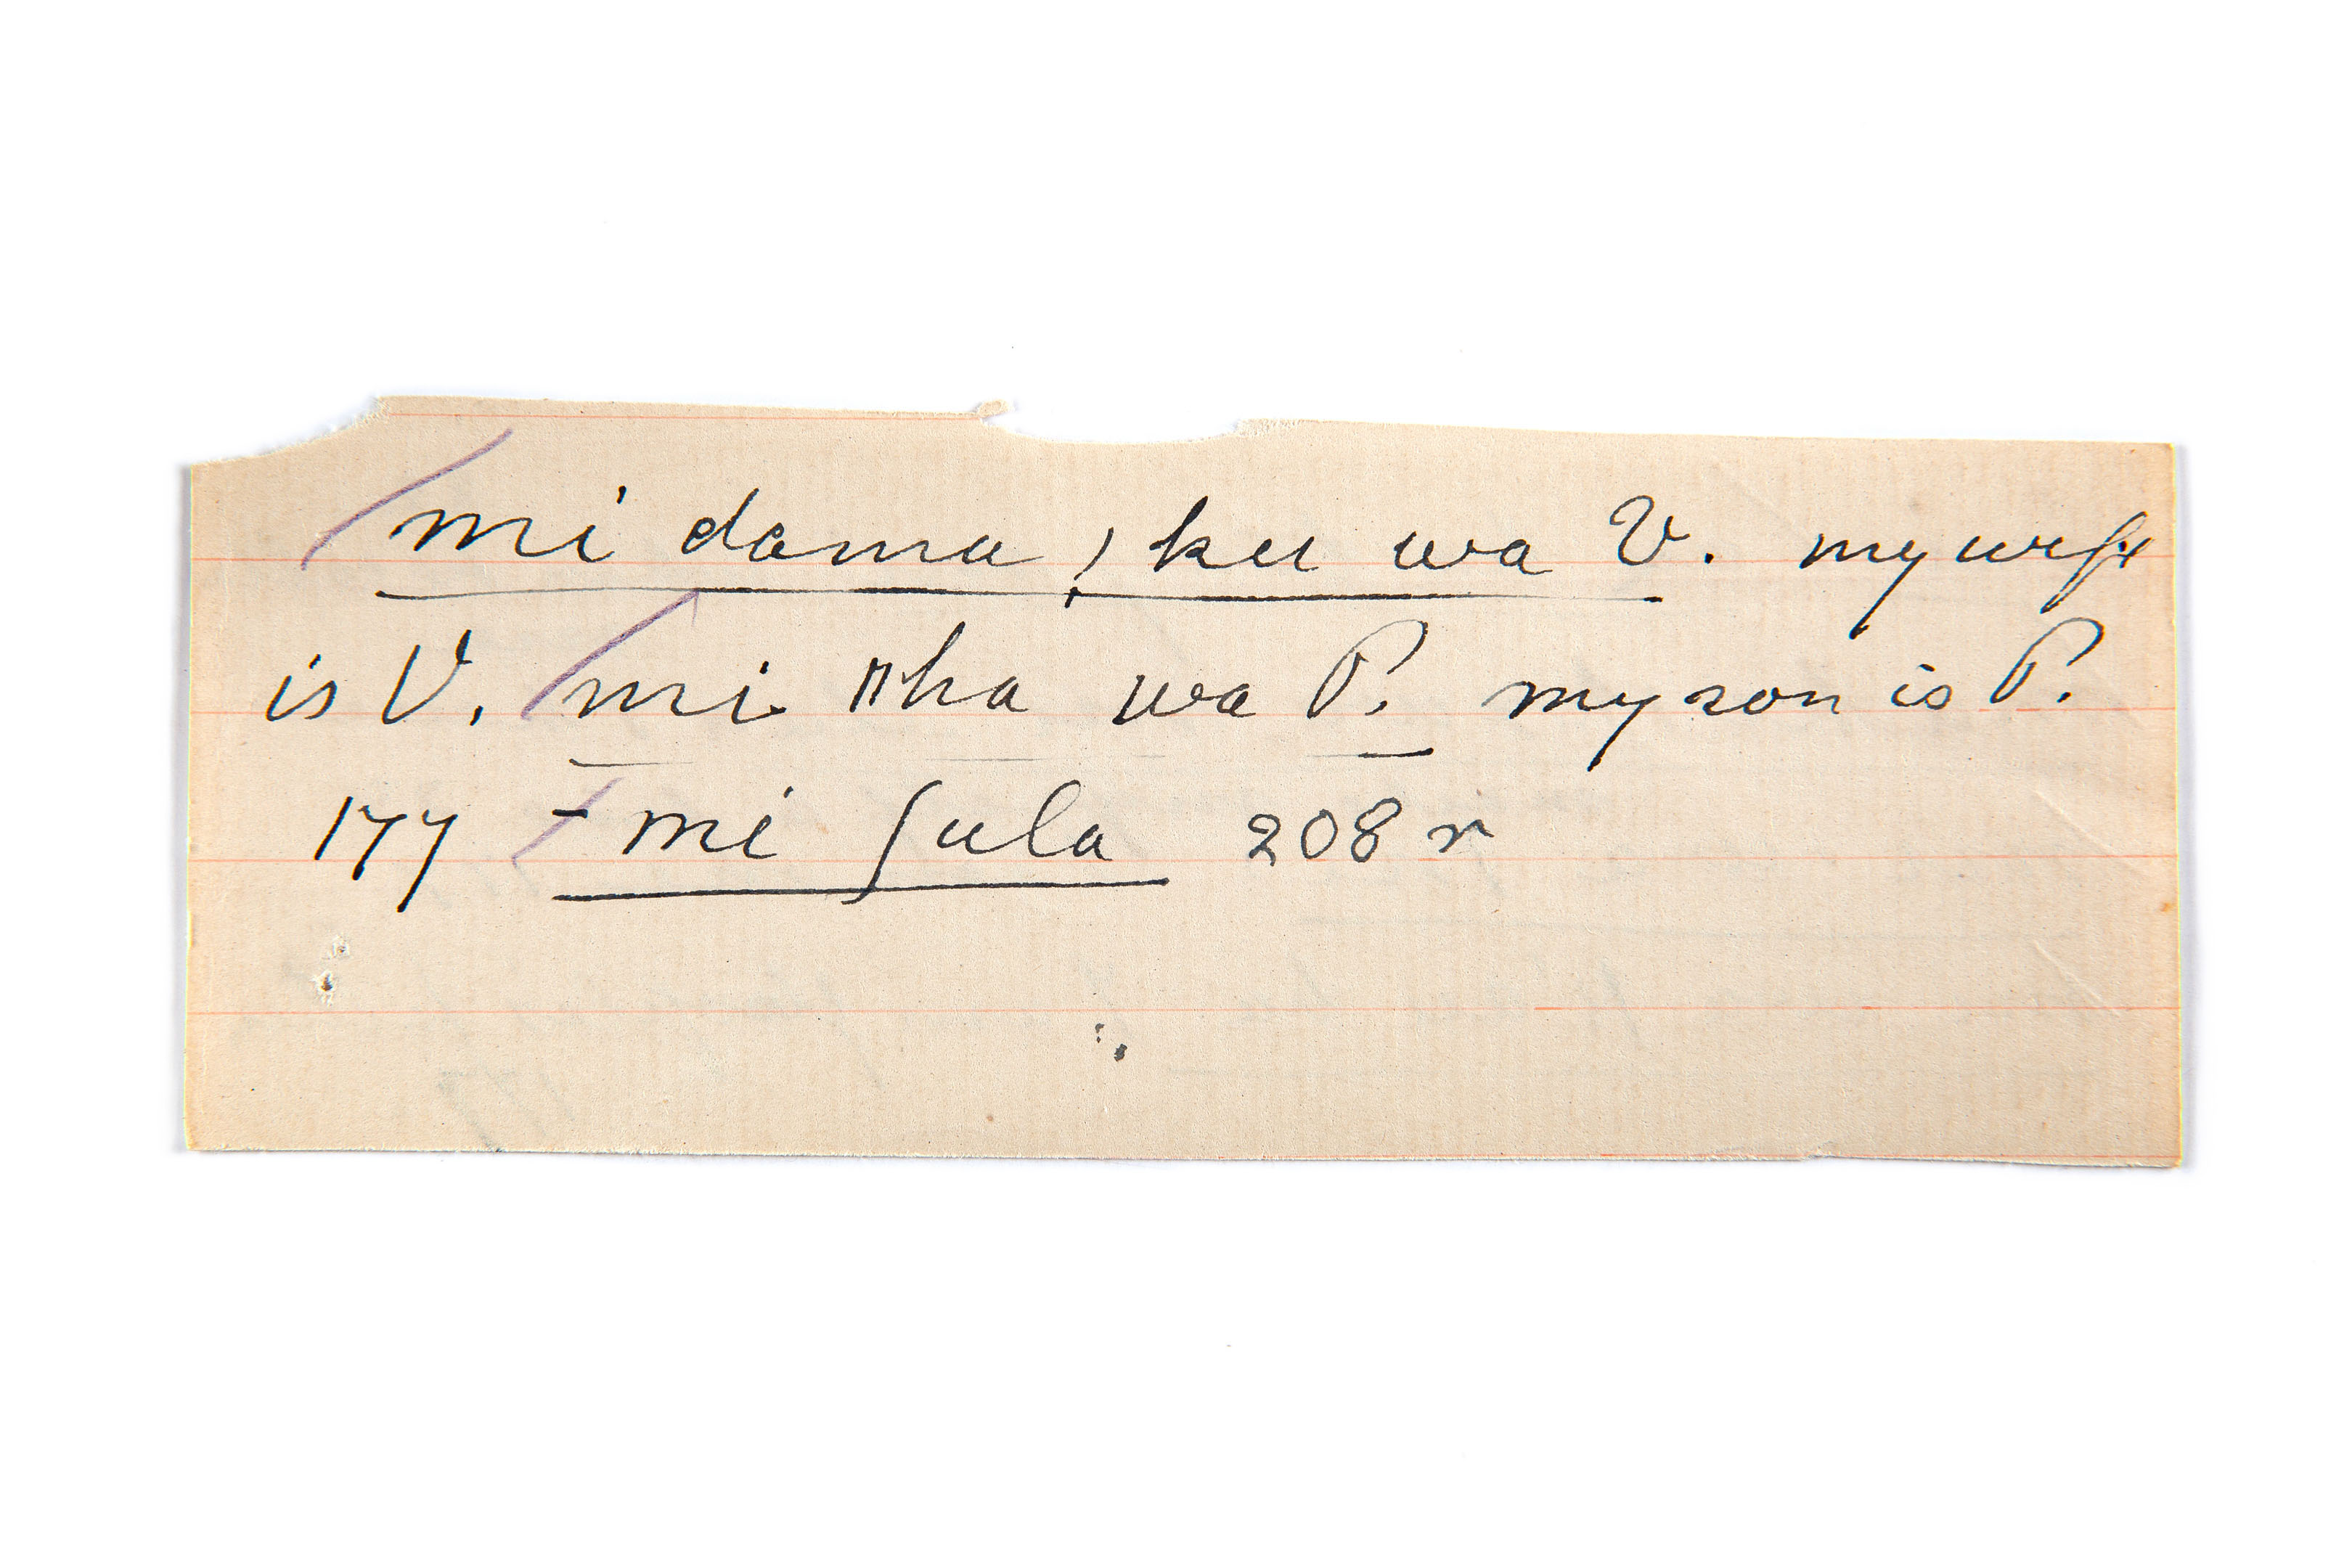 mi dama, ku wa V. my wife
is V. mi nha wa P. my son is P.
177 - mi sula 208 r